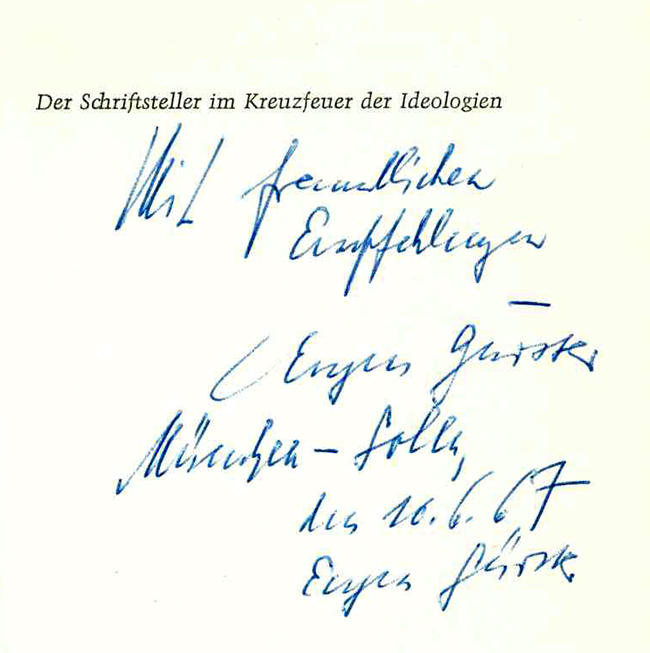 Der Schriftsteller im Kreuzfeuer der Ideologien
Mit freundlichen
Empfehlungen
—
(Eugen Gürster
München – Solln,
den 10.6.67
Eugen Gürster